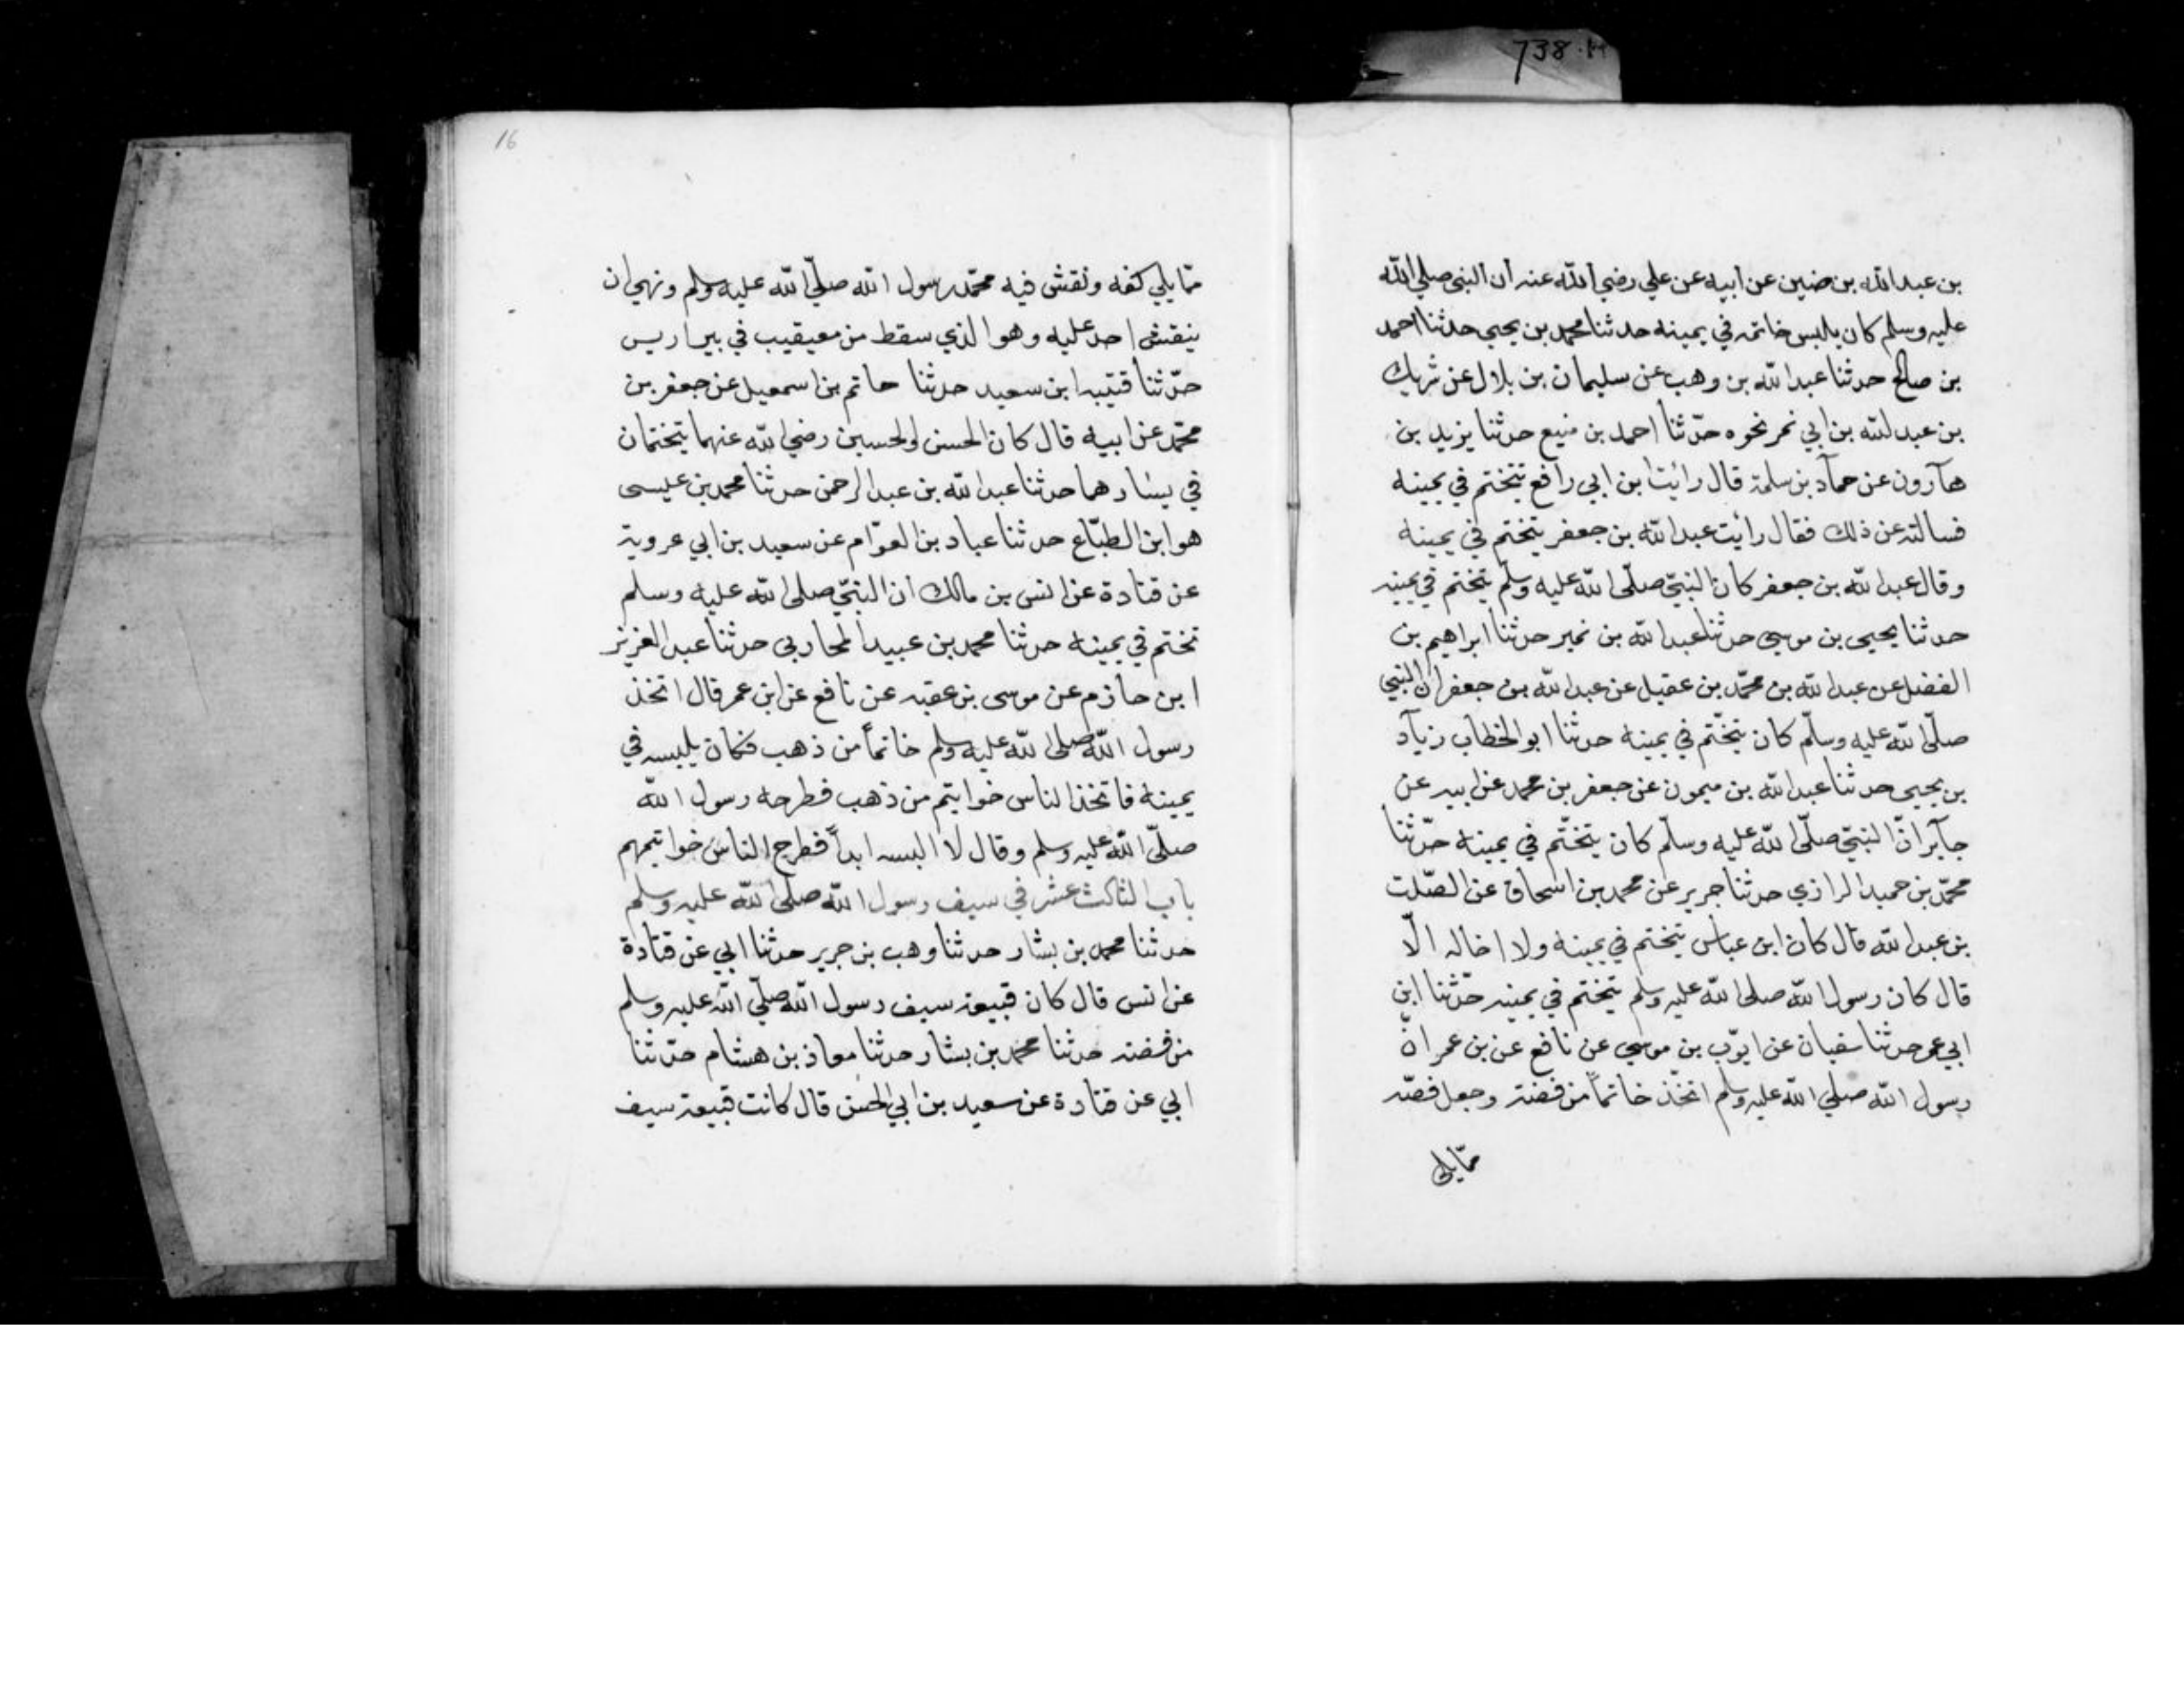 738
بن عبد الله بن حنين عن ابيه عن علي رضي الله عنه ان النبي صلي الله
عليه وسلم كان يالبس خاتمه في يمينه حدثنا محمد بن يحيى حدثنا احمد
بن صالح حدثنا عبد الله بن وهب عن سليمان بن بلال عن شريك
بن عبد لله بن ابي نمر نحوه حدّثنا احمد بن منيع حدثنا يزيد بن
هآرون عن حمآد بن سلمة قال رائيت ابن ابي رافع يتختم في يمينه
فسالته عن ذلك فقال رائيت عبد الله بن جعفر يتختم في يمينه
وقال عبد الله بن جعفر كان النبيّ صلّى الله عليه وسلّم يتختم في يمينه
حدثنا يحيى بن موسى حدثنا عبد الله بن نمير حدثنا ابراهيم بن
الفضل عن عبد الله بن محمّد بن عقيل عن عبد الله بن جعفر ان النبي
صلّى الله عليه وسلّم كان يتخّتم في يمينه حدثنا ابو الخطاب زيآد
بن يحيى حدثنا عبد الله بن ميمون عن جعفر بن محمد عن ابيه عن
جآبر انّ النبيّ صلّى الله عليه وسلّم كان يتختّم في يمينه حدّثنا
محمّد بن حميد الرازي حدثنا جرير عن محمد بن اسحاق عن الصّلت
بن عبد الله قال كان ابن عباس يتختم في يمينه ولا اخاله الّا
قال كان رسول الله صلى الله عليه وسلم يتختم في يمينه حدّثنا ابن
ابي عمر حدثنا سفيان عن ايوّب بن موسى عن نافع عن بن عمر انّ
رسول الله صلي الله عليه وسلم اتخّذ خاتماً من فضة وجعل فصّه
ممّا يلي
16
ممّا يلي كفه ونقش فيه محمّد رسول الله صلّي الله عليه وسلم ونهي ان
ينقش احد عليه وهو الذي سقط من معيقيب في بير اريس
حدّثنا قتيبه ابن سعيد حدثنا حاتم بن اسمعيل عن جعفر بن
محمّد عن ابيه قال كان الحسن والحسين رضي الله عنهما يتختمان
في يسارهما حدثنا عبد الله بن عبد الرحمن حدثنا محمد بن عليسى
هو ابن الطبّاع حدثنا عباد بن العوّام عن سعيد بن ابي عروية
عن قتادة عن انس بن مالك ان النبيّ صلى الله عليه وسلم
تختم في يمينه حدثنا محمد بن عبيد المحاربي حدثنا عبد العزيز
ابن حازم عن موسى بن عقبه عن نافع عن ابن عمر قال اتخذ
رسول الله صلى الله عليه وسلم خاتماً من ذهب فكان يلبسه في
يمينه فاتخذ الناس خوايتم من ذهب فطرحه رسول الله
صلّى الله عليه وسلم وقال لا البسه ابداً فطرح الناس خواتيمهم
باب الثالث عشر في سيف رسول الله صلى الله عليه وسلم
حدثنا محمد بن بشار حدثنا وهب بن جرير حدثنا ابي عن قتادة
عن انس قال كان قبيعة سيف رسول الله صلّي الله عليه وسلم
من فضة حدثنا محمد بن بشار حدثنا معاذ بن هشام حدّثنا
ابي عن قتادة عن سعيد بن ابي الحسن قال كانت قبيعة سيف